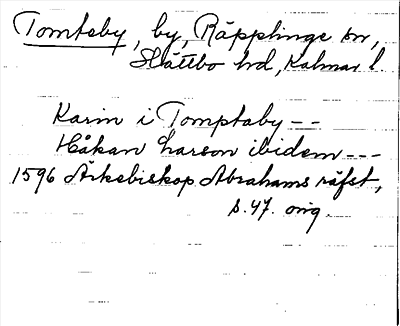 Tomteby, by, Räpplinge sn,
Slättbo hd, Kalmar l
Karin i Tomptaby --
Håkan Larson ibidem ---
1596 Ärkebiskop Abrahams räfst,
s. 47. orig.